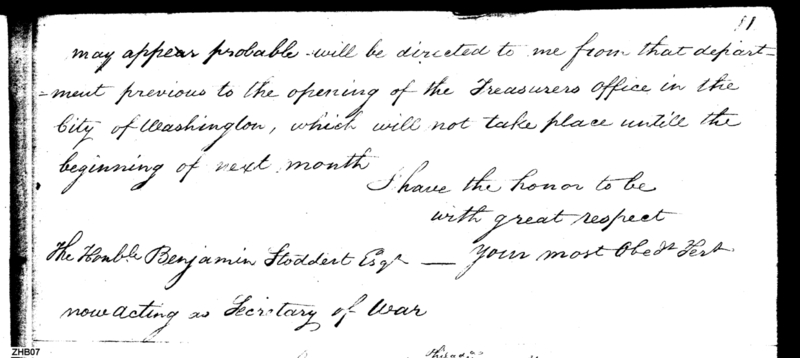 11
may appear probable will be directed to me from that depart=
=ment previous to the opening of the Treasurers office in the
City of Washington, which will not take place untill the
beginning of next month
I have the honor to be
with great respect
The Honble. Benjamin Stoddert Esqr — Your most Obedt Servt
now acting as Secretary of War
ZHB07